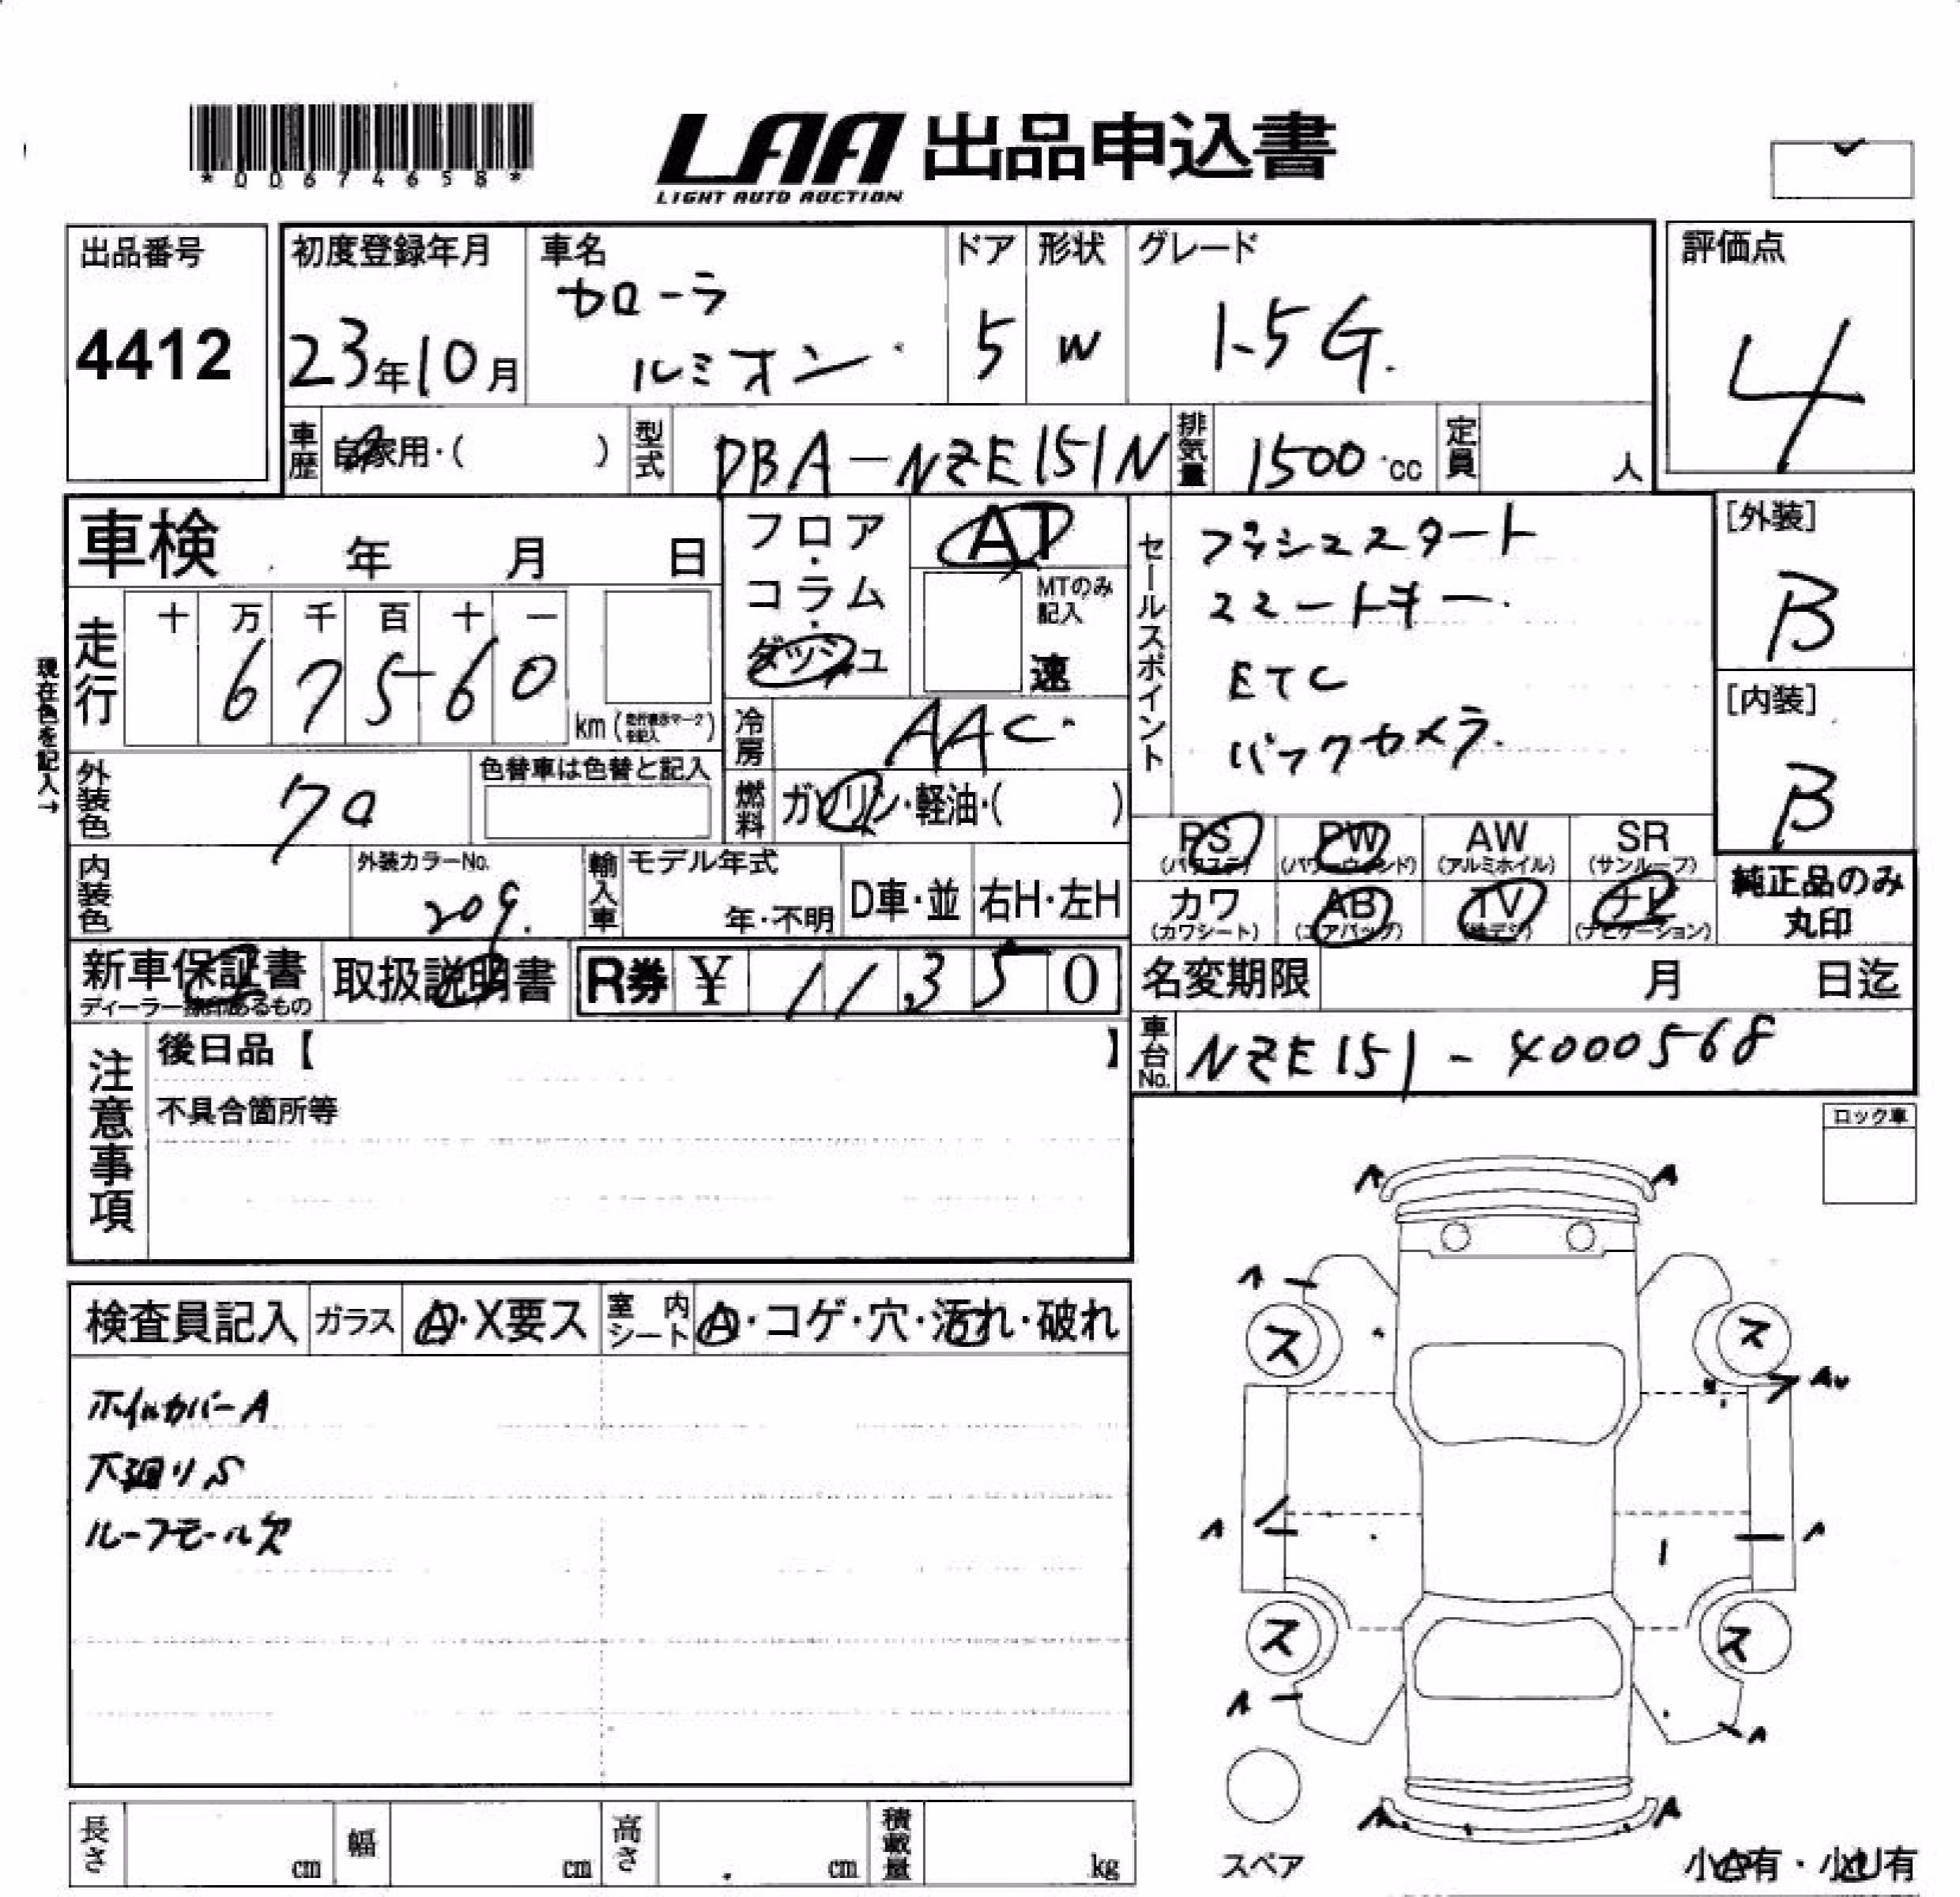 *00674658*
LAA 出品申込書
LIGHT AUTO AUCTION
出品番号
4412
初度登録年月
23年10月
車名
カローラ
ルミオン
ドア
5
形状
W
グレード
1.5G.
評価点
4
車歴
自家用・( )
型式
DBA-NZE151N
排気量
1500 cc
定員
人
車検 年 月 日
現在色を記入→
走行
十 万 千 百 十 一
6 7 5 6 0
km (走行表示マークを記入)
フロア・コラム・ダッシュ
AT
MTのみ記入
速
冷房
AAC
燃料
ガソリン・軽油・( )
セールスポイント
プッシュスタート
スマートキー
ETC
バックカメラ
[外装]
B
[内装]
B
外装色
クロ
色替車は色替と記入
内装色
外装カラーNo.
209.
輸入車
モデル年式
年・不明
D車・並
右H・左H
PS
(パワステ)
PW
(パワーウィンド)
AW
(アルミホイル)
SR
(サンルーフ)
カワ
(カワシート)
AB
(エアバッグ)
TV
(地デジ)
ナビ
(ナビゲーション)
純正品のみ
丸印
新車保証書
ディーラー捺印あるもの
取扱説明書
R券 ¥ 11,350
名変期限 月 日迄
車台No.
NZE151-4000568
注意事項
後日品【 】
不具合箇所等
ロック車
検査員記入
ガラス
A・X要ス
室内シート
A・コゲ・穴・汚れ・破れ
ホイルカバーA
下廻りS
ルーフモール欠
A A
A
ス ス
AU
A A
ス ス
A A
A A
スペア
小A有・小U有
長さ cm
幅 cm
高さ cm
積載量 kg